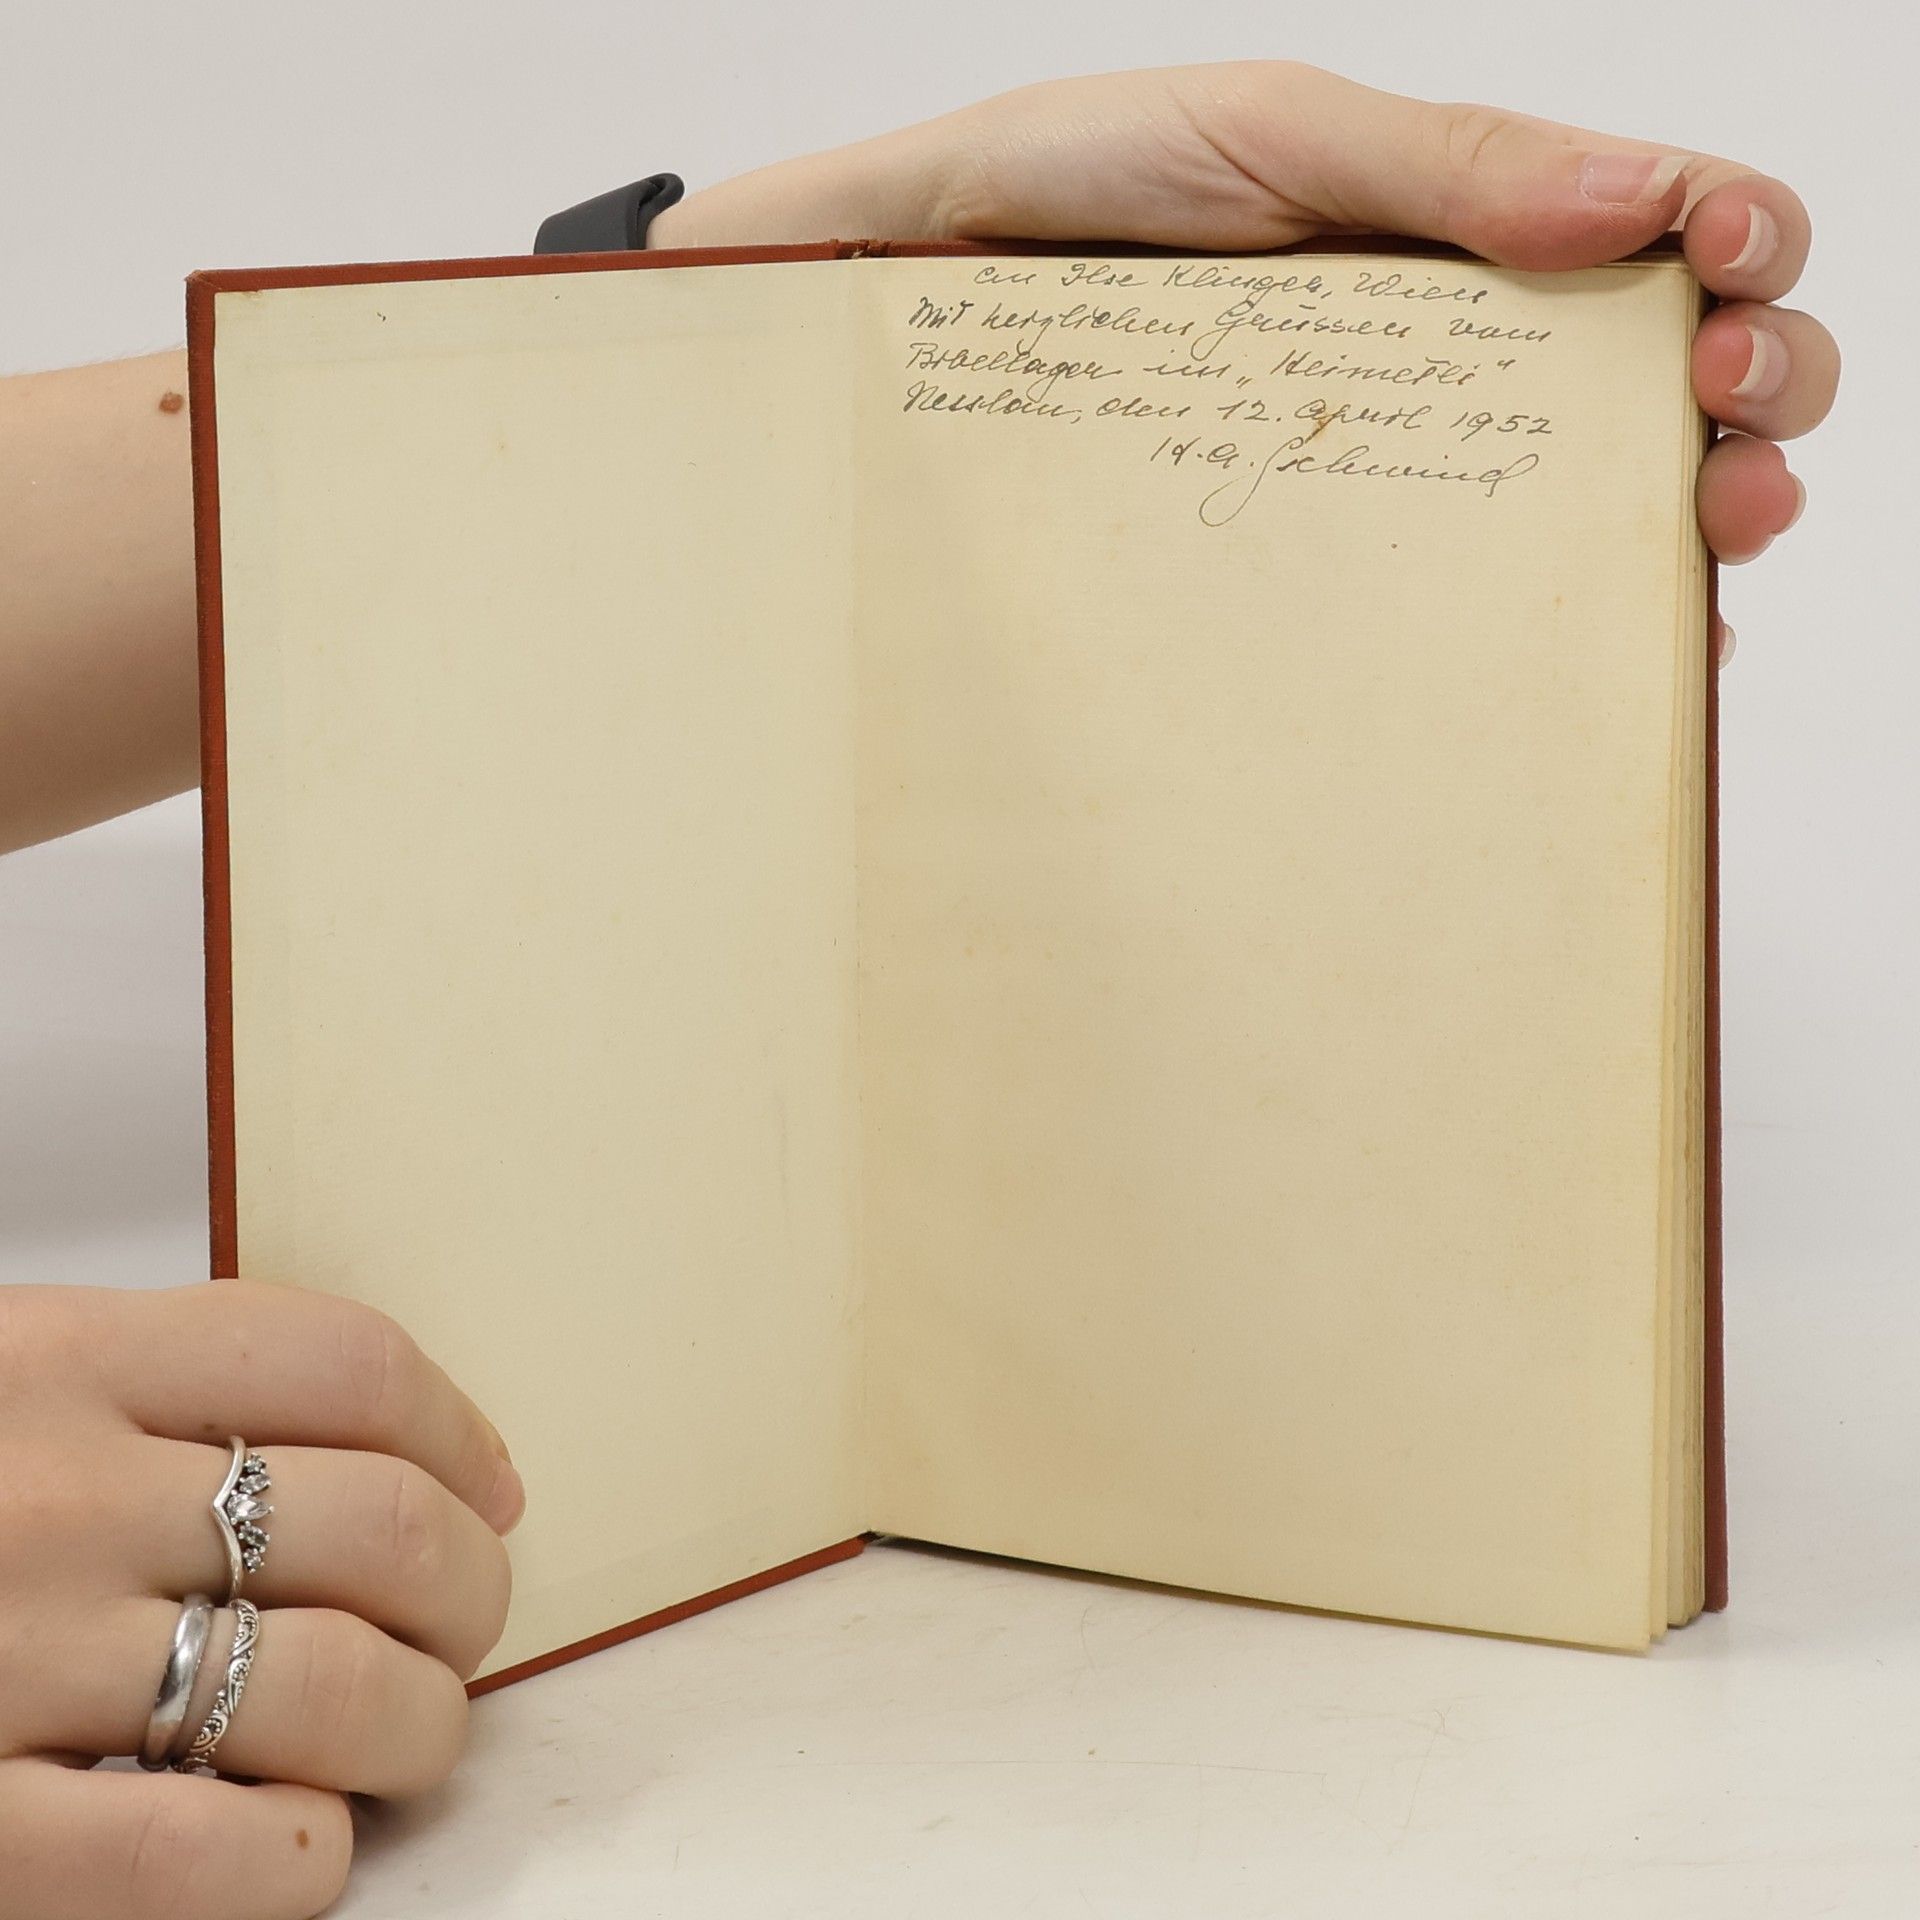 an Ilse Klinger, Wien
Mit herzlichen Grüssen vom
Bibellager im „Heimetli“
Nesslau, den 12. April 1952
H. A. Gschwind